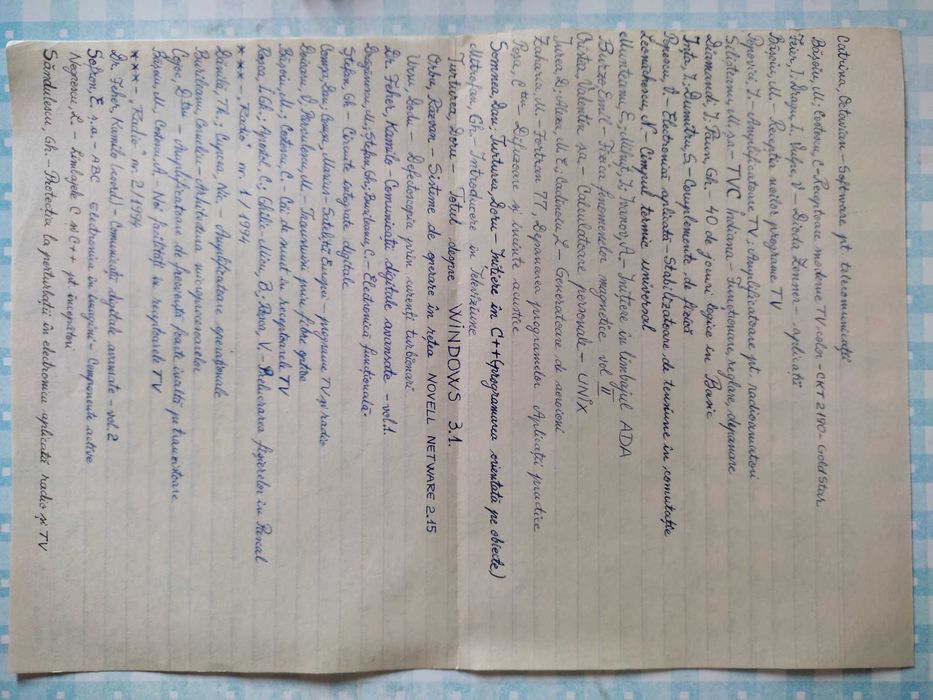 Catrina, Octavian - Software pt. telecomunicații
Băjău, M.; Costeiu, C. - Receptoare moderne TV color - CKT 2190 - GoldStar
Felix, I. Dragu, I. Vulpe, V - Dioda Zenner - aplicații
Băjeu, M. - Recepția noilor programe TV
Popovici, I. - Amplificatoare TV; Amplificatoare pt. radioamatori
Silișteanu, M. ș.a. - TVC Indiana - Funcționare, reglare, depanare
Diamandi, I. Păun, Gh. - 40 de jocuri logice în Basic
Iota, I. Dumitru, S. - Complemente de fizică
Popescu, V - Electronică aplicată Stabilizatoare de tensiune în comutație
Leonăchescu, N - Cîmpul termic univocal
Munteanu, E; Mîță, I; Ivanov, A - Inițiere în limbajul ADA
Burzo Emil - Fizica fenomenelor magnetice vol II
Cristea, Valentin ș.a - Calculatoare personale - UNIX
Jurca, D; Alexa, M. E, Calinoiu, L - Generatoare de aerosoni
Zaharia, M. - Fortran 77, Depanarea programelor. Aplicații practice
Popa, C-tin - Difuzoare și incinte acustice
Somnea Dan; Turturea, Doru - Inițiere în C++ (programarea orientată pe obiecte)
Mitrofan, Gh. - Introducere în Televiziune
Turturea, Doru - Totul despre WINDOWS 3.1.
Orbu, Răzvan - Sisteme de operare în rețea NOVELL NETWARE 2.15
Ursu, Dodu - Defectoscopia prin curenți turbionari
Dr. Feher, Kamilo - Comunicații digitale avansate - vol. 1.
Drăgănescu, M; Ștefan, Gh; Burileanu, C. - Electronică funcțională
Ștefan, Gh - Circuite integrate digitale
Coman, Dan; Coman, Marius - Sateliții Europei - programe TV și radio
Doicaru, V. Pârvulescu, M. - Transmisii prin fibre optice
Băjeu, M; Costeiu, C. - Căi de sunet în receptoarele TV
*** „Radio” nr. 1 / 1994
Roșca, I. Gh; Apostol, C; Ghilic-Micu, B; Roșca V. - Prelucrarea fișierelor în Pascal
Dănilă, Th.; Cupcea, Nic. - Amplificatoare operaționale
Burileanu, Corneliu - Arhitectura microprocesoarelor
Cezar, D-tru - Amplificatoare de frecvență foarte înaltă pe tranzistoare
Băjeu, M, Costeiu, A - Noi facilități în receptoarele TV
*** „Radio” nr. 2 / 1994
Dr. Feher, Kamilo (coord) - Comunicații digitale avansate - vol. 2
Sofron, E. ș.a. - ABC Electronica în imagini - Componente active
Negrescu, L. - Limbajele C și C++ pt. începători
Săndulescu, Gh. - Protecția la perturbații în electronica aplicată radio și TV